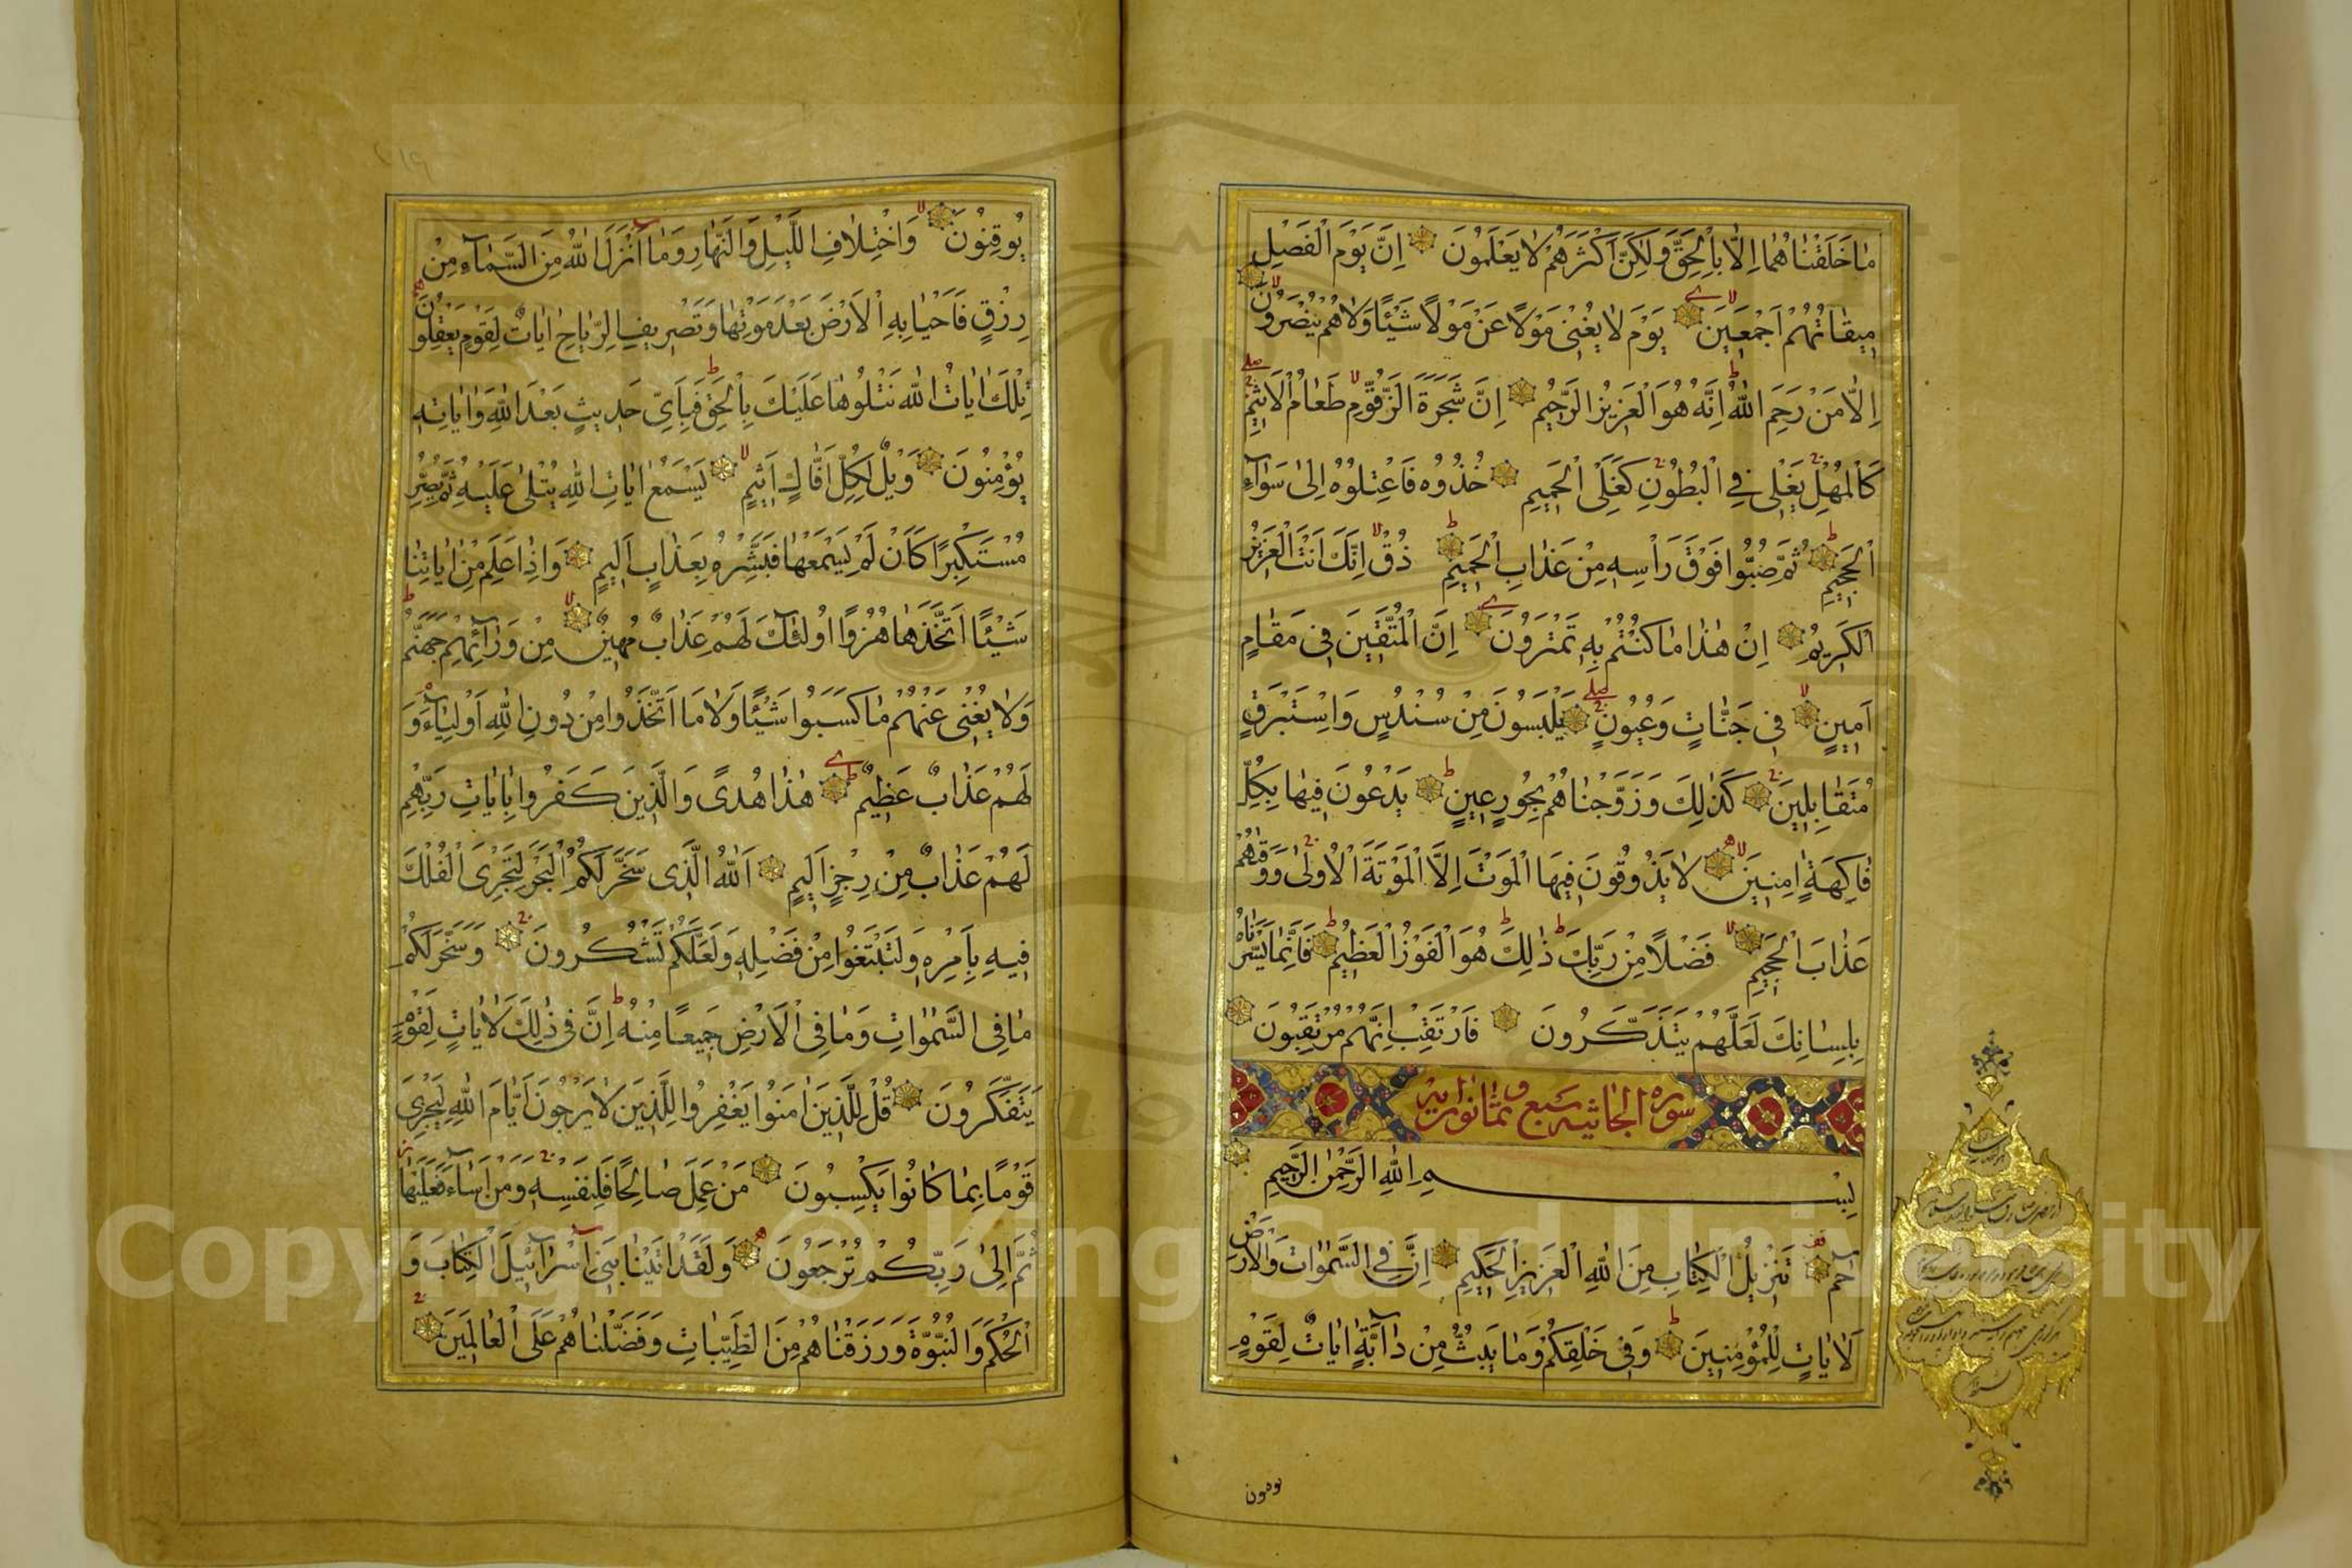 مَا خَلَقْنَاهُمَا اِلَّا بِالْحَقِّ وَلٰكِنَّ اَكْثَرَهُمْ لَا يَعْلَمُونَ اِنَّ يَوْمَ الْفَصْلِ
مِيقَاتُهُمْ اَجْمَعِينَ يَوْمَ لَا يُغْنِى مَوْلًا عَنْ مَوْلًا شَيْئًا وَلَا هُمْ يُنْصَرُونَ
اِلَّا مَنْ رَحِمَ اللّٰهُ اِنَّهُ هُوَ الْعَزِيزُ الرَّحِيمُ اِنَّ شَجَرَةَ الزَّقُّومِ طَعَامُ الْاَثِيمِ
كَالْمُهْلِ يَغْلِى فِي الْبُطُونِ كَغَلْىِ الْحَمِيمِ خُذُوهُ فَاعْتِلُوهُ اِلٰى سَوَآءِ
الْجَحِيمِ ثُمَّ صُبُّوا فَوْقَ رَاْسِهِ مِنْ عَذَابِ الْحَمِيمِ ذُقْ اِنَّكَ اَنْتَ الْعَزِيزُ
الْكَرِيمُ اِنَّ هٰذَا مَا كُنْتُمْ بِهِ تَمْتَرُونَ اِنَّ الْمُتَّقِينَ فِى مَقَامٍ
اَمِينٍ فِى جَنَّاتٍ وَعُيُونٍ يَلْبَسُونَ مِنْ سُنْدُسٍ وَاِسْتَبْرَقٍ
مُتَقَابِلِينَ كَذٰلِكَ وَزَوَّجْنَاهُمْ بِحُورٍ عِينٍ يَدْعُونَ فِيهَا بِكُلِّ
فَاكِهَةٍ اٰمِنِينَ لَا يَذُوقُونَ فِيهَا الْمَوْتَ اِلَّا الْمَوْتَةَ الْاُولٰى وَوَقٰهُمْ
عَذَابَ الْجَحِيمِ فَضْلًا مِنْ رَبِّكَ ذٰلِكَ هُوَ الْفَوْزُ الْعَظِيمُ فَاِنَّمَا يَسَّرْنَاهُ
بِلِسَانِكَ لَعَلَّهُمْ يَتَذَكَّرُونَ فَارْتَقِبْ اِنَّهُمْ مُرْتَقِبُونَ
سوره الجاثيه سبع و ثلثون اية
بِسْمِ اللّٰهِ الرَّحْمٰنِ الرَّحِيمِ
حٰمٓ تَنْزِيلُ الْكِتَابِ مِنَ اللّٰهِ الْعَزِيزِ الْحَكِيمِ اِنَّ فِي السَّمٰوَاتِ وَالْاَرْضِ
لَاٰيَاتٍ لِلْمُؤْمِنِينَ وَفِى خَلْقِكُمْ وَمَا يَبُثُّ مِنْ دَآبَّةٍ اٰيَاتٌ لِقَوْمٍ
يُوقِنُونَ وَاخْتِلَافِ اللَّيْلِ وَالنَّهَارِ وَمَا اَنْزَلَ اللّٰهُ مِنَ السَّمَآءِ مِنْ
رِزْقٍ فَاَحْيَا بِهِ الْاَرْضَ بَعْدَ مَوْتِهَا وَتَصْرِيفِ الرِّيَاحِ اٰيَاتٌ لِقَوْمٍ يَعْقِلُونَ
تِلْكَ اٰيَاتُ اللّٰهِ نَتْلُوهَا عَلَيْكَ بِالْحَقِّ فَبِاَىِّ حَدِيثٍ بَعْدَ اللّٰهِ وَاٰيَاتِهِ
يُؤْمِنُونَ وَيْلٌ لِكُلِّ اَفَّاكٍ اَثِيمٍ يَسْمَعُ اٰيَاتِ اللّٰهِ يُتْلٰى عَلَيْهِ ثُمَّ يُصِرُّ
مُسْتَكْبِرًا كَاَنْ لَمْ يَسْمَعْهَا فَبَشِّرْهُ بِعَذَابٍ اَلِيمٍ وَاِذَا عَلِمَ مِنْ اٰيَاتِنَا
شَيْئًا اتَّخَذَهَا هُزُوًا اُولٰئِكَ لَهُمْ عَذَابٌ مُهِينٌ مِنْ وَرَآئِهِمْ جَهَنَّمُ
وَلَا يُغْنِى عَنْهُمْ مَا كَسَبُوا شَيْئًا وَلَا مَا اتَّخَذُوا مِنْ دُونِ اللّٰهِ اَوْلِيَآءَ وَ
لَهُمْ عَذَابٌ عَظِيمٌ هٰذَا هُدًى وَالَّذِينَ كَفَرُوا بِاٰيَاتِ رَبِّهِمْ
لَهُمْ عَذَابٌ مِنْ رِجْزٍ اَلِيمٍ اَللّٰهُ الَّذِى سَخَّرَ لَكُمُ الْبَحْرَ لِتَجْرِىَ الْفُلْكُ
فِيهِ بِاَمْرِهِ وَلِتَبْتَغُوا مِنْ فَضْلِهِ وَلَعَلَّكُمْ تَشْكُرُونَ وَسَخَّرَ لَكُمْ
مَا فِى السَّمٰوَاتِ وَمَا فِى الْاَرْضِ جَمِيعًا مِنْهُ اِنَّ فِى ذٰلِكَ لَاٰيَاتٍ لِقَوْمٍ
يَتَفَكَّرُونَ قُلْ لِلَّذِينَ اٰمَنُوا يَغْفِرُوا لِلَّذِينَ لَا يَرْجُونَ اَيَّامَ اللّٰهِ لِيَجْزِىَ
قَوْمًا بِمَا كَانُوا يَكْسِبُونَ مَنْ عَمِلَ صَالِحًا فَلِنَفْسِهِ وَمَنْ اَسَآءَ فَعَلَيْهَا
ثُمَّ اِلٰى رَبِّكُمْ تُرْجَعُونَ وَلَقَدْ اٰتَيْنَا بَنِى اِسْرَآئِيلَ الْكِتَابَ وَ
الْحُكْمَ وَالنُّبُوَّةَ وَرَزَقْنَاهُمْ مِنَ الطَّيِّبَاتِ وَفَضَّلْنَاهُمْ عَلَى الْعَالَمِينَ
Copyright © King Saud University